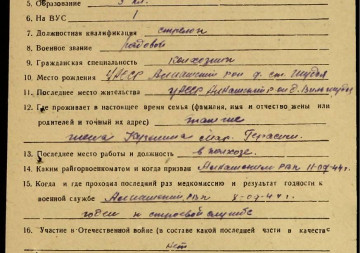 5. Образование 3 кл.
6. На ВУС 1
7. Должностная квалификация стрелок
8. Военное звание рядовой
9. Гражданская специальность колхозник
10. Место рождения УАССР Алнашский р-он д. ст. Шудья
11. Последнее место жительства УАССР Алнашский р-он д.
12. Где проживает в настоящее время семья (фамилия, имя и отчество жены или
родителей и точный их адрес) там же
жена Кузмина
13. Последнее место работы и должность в колхозе.
14. Каким райгорвоенкоматом и когда призван Алнашский РВК 11-09-44 г.
15. Когда и где проходил последний раз медкомиссию и результат годности к
военной службе Алнашский РВК 8-09-44 г.
годен к строевой службе
16. Участие в Отечественной войне (в составе какой последней части в качестве
нет